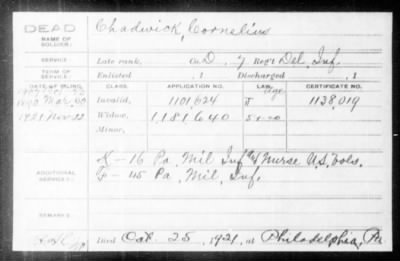 DEAD
NAME OF SOLDIER:
Chadwick, Cornelius
SERVICE:
Late rank, Co. D, 7 Reg't Del. Inf.
TERM OF SERVICE:
Enlisted , 1 Discharged , 1
DATE OF FILING. CLASS. APPLICATION NO. LAW. CERTIFICATE NO.
1890 Mar. Invalid, 1101,624 1138,019
1921 Nov 22 Widow, 1,181,640
Minor,
ADDITIONAL SERVICES:
K-16 Pa. Mil Inf Nurse U.S. Vols.
G-45 Pa. Mil. Inf.
REMARKS:
Died Oct. 25, 1921, at Philadelphia, Pa